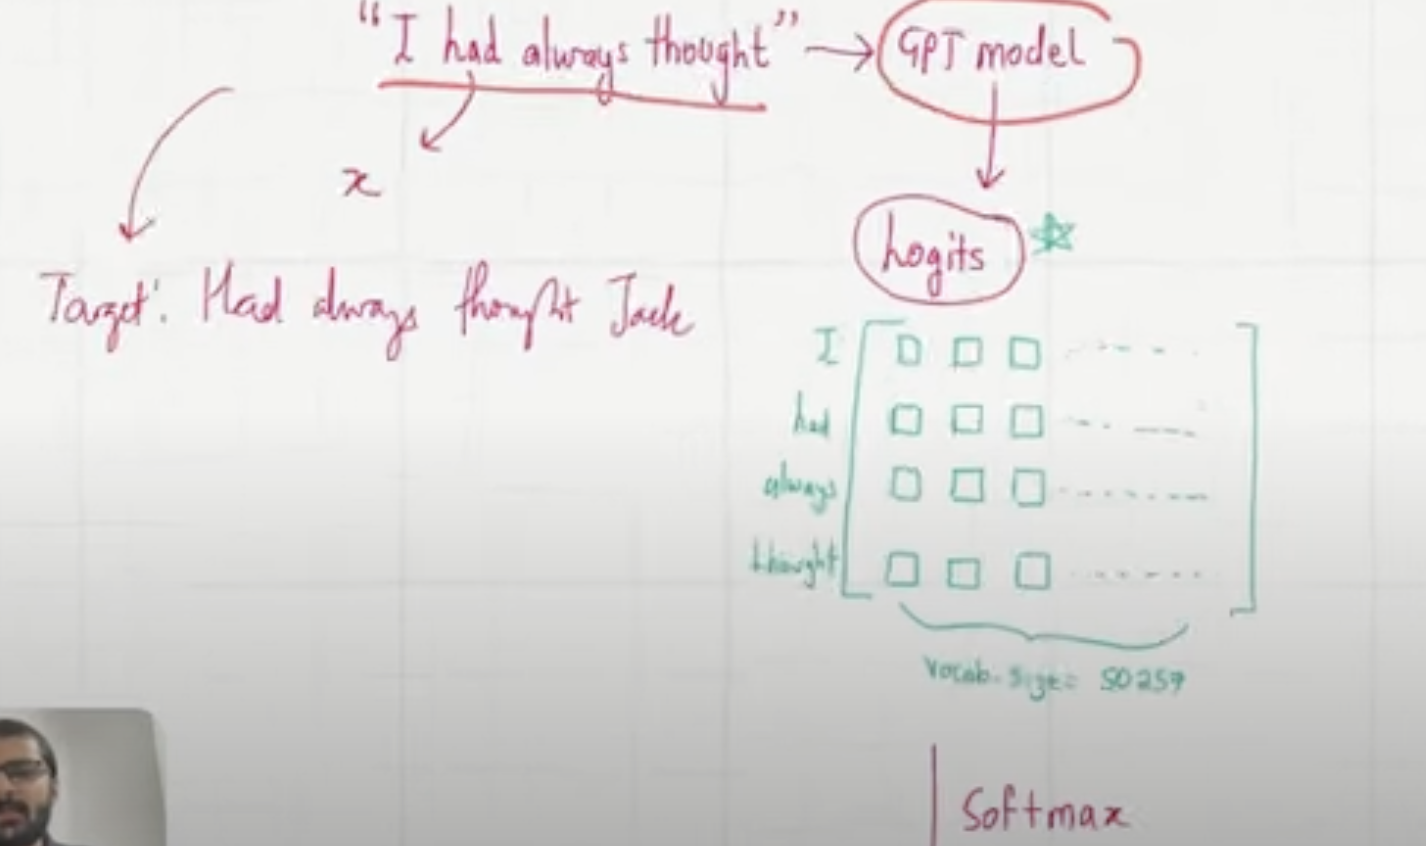 “I had always thought” → GPT model
x
Logits
Target: Had always thought Jack
I
had
always
thought
Vocab. size = 50257
Softmax